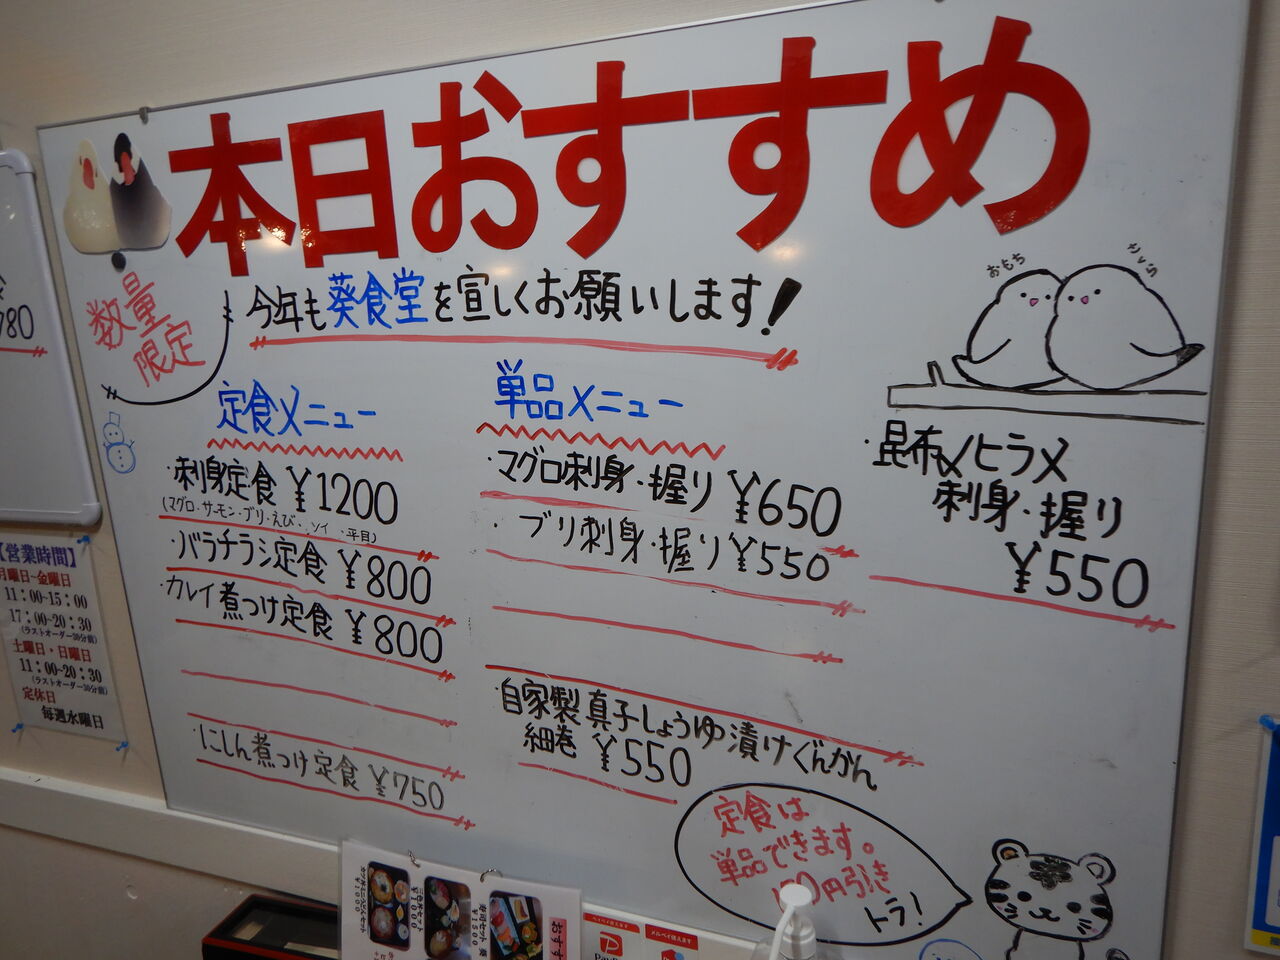 本日おすすめ
数量
限定
今年も葵食堂を宜しくお願いします!
おもち
定食メニュー
・刺身定食 ¥1200
(マグロ・サーモン・ブリ・えび・ソイ・平目)
・バラチラシ定食 ¥800
・カレイ煮つけ定食 ¥800
・にしん煮つけ定食 ¥750
単品メニュー
・マグロ刺身・握り ¥650
・ブリ刺身・握り ¥550
・自家製真子しょうゆ漬けぐんかん
細巻 ¥550
・昆布〆ヒラメ
刺身・握り
¥550
定食は
単品できます。
100円引き
トラ!
780
【営業時間】
月曜日~金曜日
11:00~15:00
17:00~20:30
(ラストオーダー30分前)
土曜日・日曜日
11:00~20:30
(ラストオーダー30分前)
定休日
毎週水曜日
おすす
寿司セット
¥1500
三色丼セット
¥1000
¥1000
ペイペイ使えます
PayP
メルペイ使えます